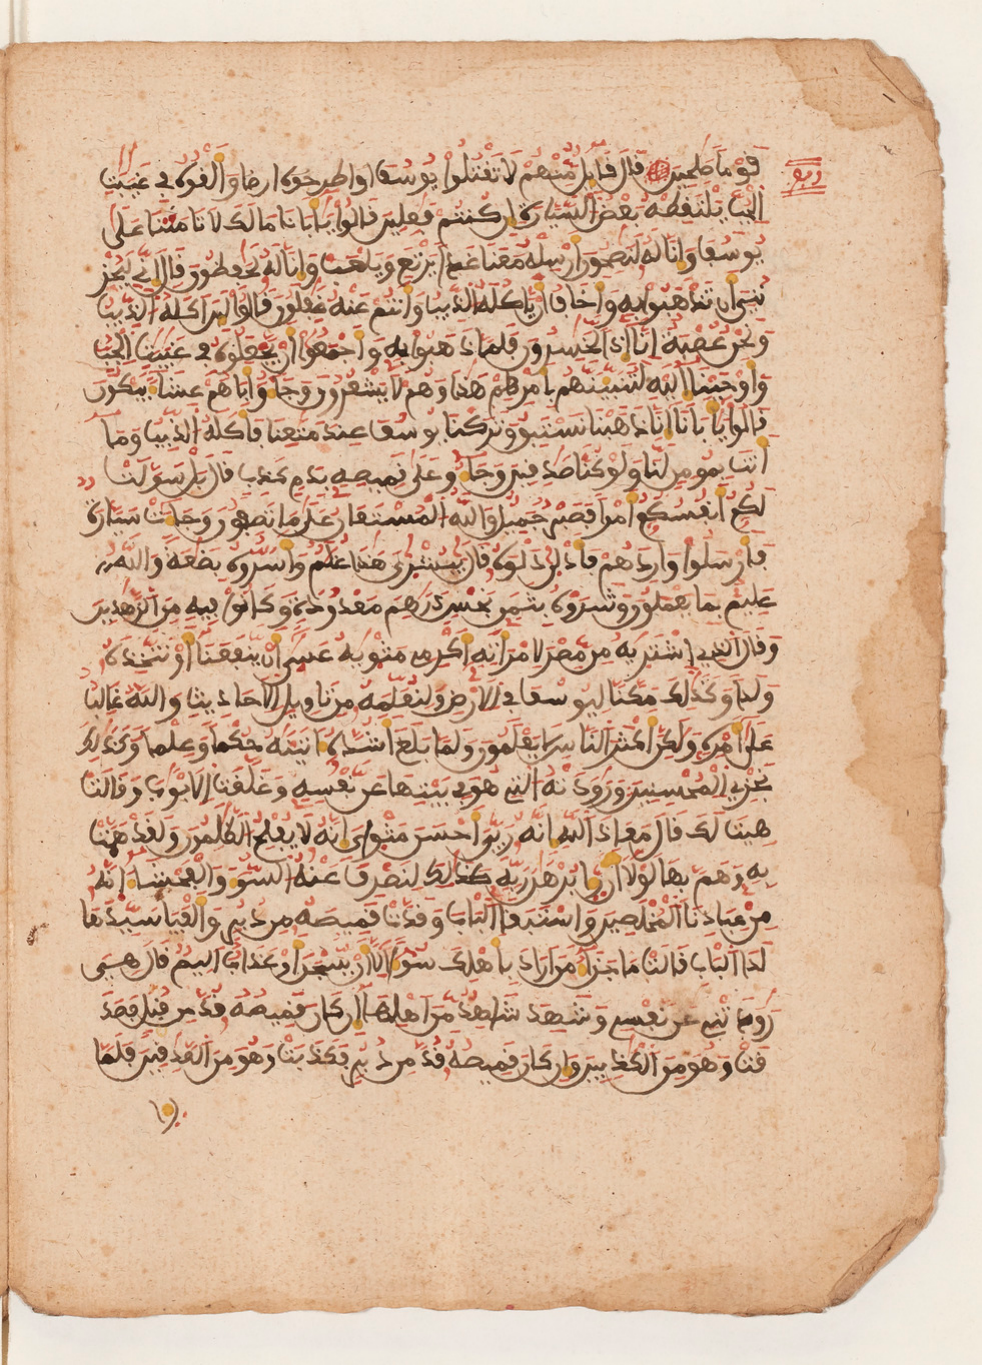 ربع
قوما صلحين قال قايل منهم لا تقتلوا يوسف او اطرحوه ارضا والقوه في غيبت
الجب يلتقطه بعض السيارة ان كنتم فعلين قالوا يابانا ما لك لا تامنا على
يوسف وانا له لنصحون ارسله معنا غدا يرتع ويلعب وانا له لحفظون قال اني ليحز
نني ان تذهبوا به واخاف ان ياكله الذيب وانتم عنه غفلون قالوا لين اكله الذيب
ونحن عصبة انا اذا لخسرون فلما ذهبوا به واجمعوا ان يجعلوه في غيبت الجب
واوحينا اليه لتنبينهم بامرهم هذا وهم لا يشعرون وجاو اباهم عشا يبكون
قالوا يابانا انا ذهبنا نستبق وتركنا يوسف عند متعنا فاكله الذيب وما
انت بمومن لنا ولو كنا صدقين وجاو على قميصه بدم كذب قال بل سولت
لكم انفسكم امرا فصبر جميل والله المستعان على ما تصفون وجات سيارة
فارسلوا واردهم فادلى دلوه قال يبشرى هذا غلم واسروه بضعة والله
عليم بما يعملون وشروه بثمن بخس درهم معدودة وكانوا فيه من الزهدين
وقال الذي اشتريه من مصر لامراته اكرمي مثويه عسى ان ينفعنا او نتخذه
ولدا وكذلك مكنا ليوسف في الارض ولنعلمه من تاويل الاحاديث والله غالب
على امره ولكن اكثر الناس لا يعلمون ولما بلغ اشده اتينه حكما وعلما وكذلك
نجزي المحسنين ورودته التي هو في بيتها عن نفسه وغلقت الابوب وقالت
هيت لك قال معاذ الله انه ربي احسن مثواى انه لا يفلح الظلمون ولقد همت
به وهم بها لولا ان را برهن ربه كذلك لنصرف عنه السو والفحشا انه
من عبادنا المخلصين واستبقا الباب وقدت قميصه من دبر والفيا سيدها
لدا الباب قالت ما جزا من اراد باهلك سوا الا ان يسجن او عذاب اليم قال هي
رودتني عن نفسي وشهد شاهد من اهلها ان كان قميصه قد من قبل فصد
قت وهو من الكذبين وان كان قميصه قد من دبر فكذبت وهو من الصدقين فلما